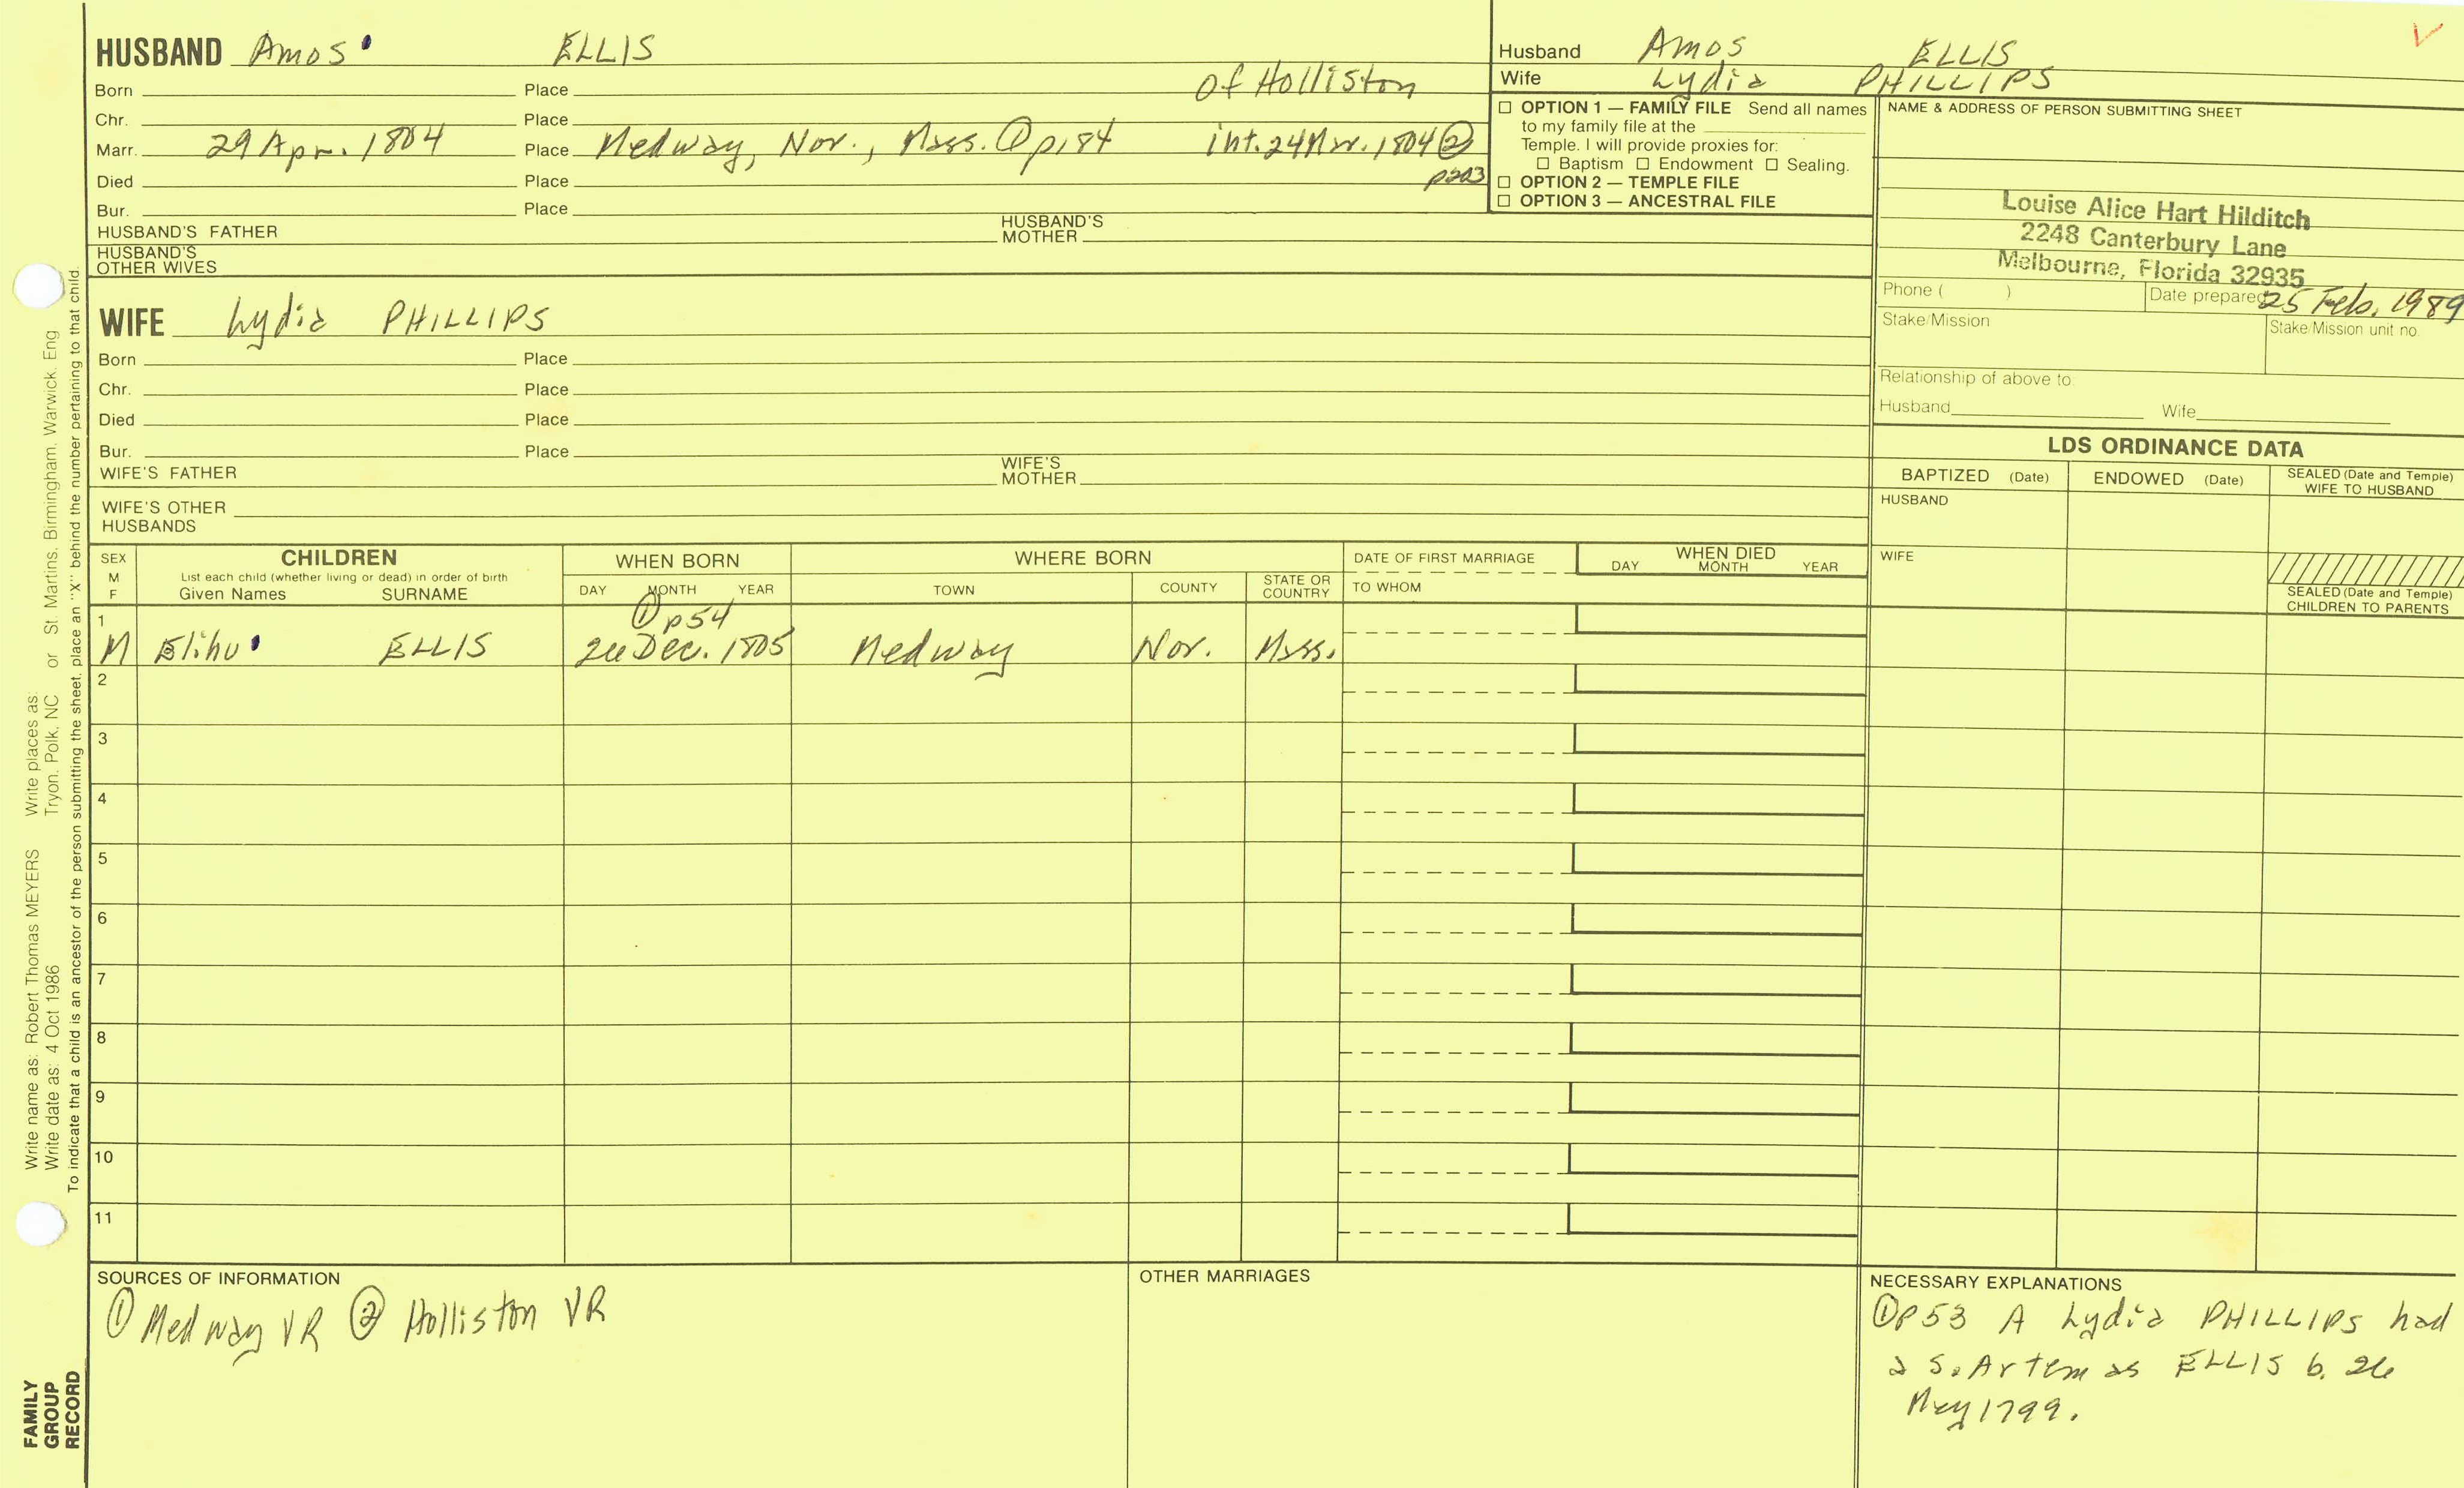 HUSBAND Amos ELLIS
Born Place of Holliston
Chr. Place
Marr. 29 Apr. 1804 Place Medway, Nor., Mass. ① p184 int. 24 Mar. 1804 ②
p203
Died Place
Bur. Place
HUSBAND'S FATHER HUSBAND'S MOTHER
HUSBAND'S OTHER WIVES
Husband Amos ELLIS
Wife Lydia PHILLIPS
☐ OPTION 1 — FAMILY FILE Send all names
to my family file at the
Temple. I will provide proxies for:
☐ Baptism ☐ Endowment ☐ Sealing.
☐ OPTION 2 — TEMPLE FILE
☐ OPTION 3 — ANCESTRAL FILE
NAME & ADDRESS OF PERSON SUBMITTING SHEET
Louise Alice Hart Hilditch
2248 Canterbury Lane
Melbourne, Florida 32935
Phone ( ) Date prepared 25 Feb. 1989
Stake/Mission Stake/Mission unit no.
Relationship of above to:
Husband Wife
WIFE Lydia PHILLIPS
Born Place
Chr. Place
Died Place
Bur. Place
WIFE'S FATHER WIFE'S MOTHER
WIFE'S OTHER HUSBANDS
LDS ORDINANCE DATA
BAPTIZED (Date) ENDOWED (Date) SEALED (Date and Temple) WIFE TO HUSBAND
HUSBAND
WIFE
SEALED (Date and Temple) CHILDREN TO PARENTS
SEX M F
CHILDREN
List each child (whether living or dead) in order of birth
Given Names SURNAME
WHEN BORN
DAY MONTH YEAR
WHERE BORN
TOWN COUNTY STATE OR COUNTRY
DATE OF FIRST MARRIAGE
TO WHOM
WHEN DIED
DAY MONTH YEAR
1
① p54
M Elihu ELLIS 26 Dec. 1805 Medway Nor. Mass.
2
3
4
5
6
7
8
9
10
11
SOURCES OF INFORMATION
① Medway VR ② Holliston VR
OTHER MARRIAGES
NECESSARY EXPLANATIONS
① p53 A Lydia PHILLIPS had
a s. Artemas ELLIS b. 26
May 1799.
Write name as: Robert Thomas MEYERS Write places as:
Write date as: 4 Oct 1986 Tryon, Polk, NC or St. Martins, Birmingham, Warwick, Eng
To indicate that a child is an ancestor of the person submitting the sheet, place an "X" behind the number pertaining to that child.
FAMILY
GROUP
RECORD